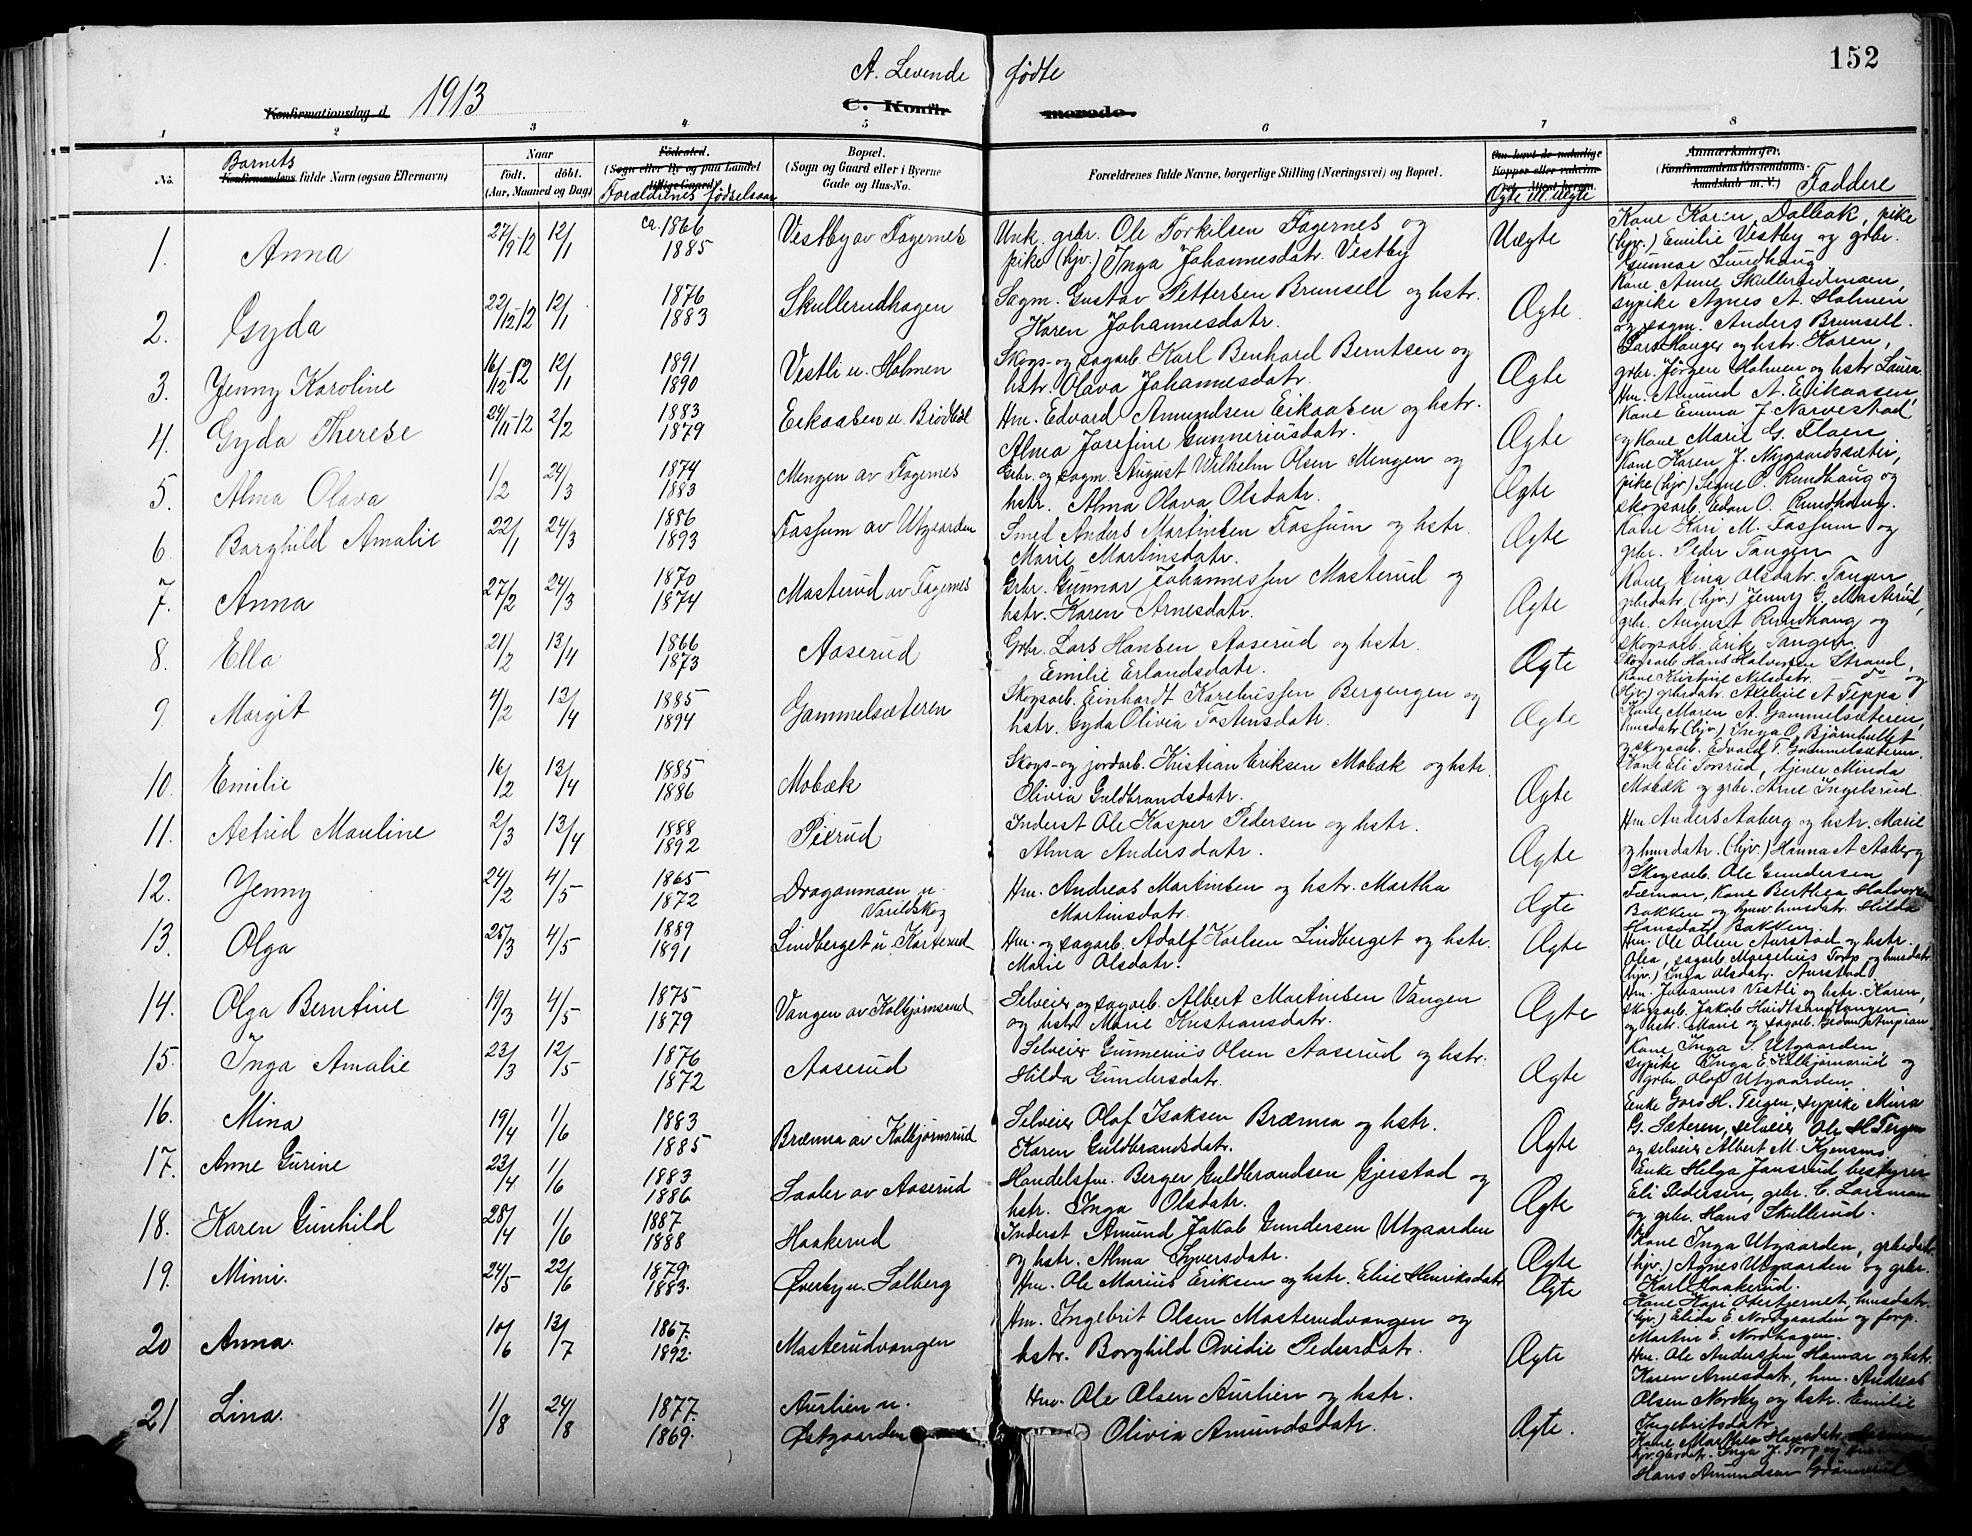 152
A. Levende fødte
1913
Konfirmationsdag d.
C. Konfirmerede.
1 2 3 4 5 6 7 8
No.
Barnets
Konfirmandens fulde Navn (ogsaa Efternavn)
Naar
født. døbt.
(Aar, Maaned og Dag)
Fødested.
(Sogn eller By og paa Landet
tillige Gaard)
Forældrenes fødselsaar
Bopæl.
(Sogn og Gaard eller i Byerne
Gade og Hus-No.
Forældrenes fulde Navne, borgerlige Stilling (Næringsvei) og Bopæl.
Om havt de naturlige
Kopper eller vakcine-
Ægte ell. uægte
Anmærkninger.
(Konfirmandens Kristendoms-
kundskab m. V.)
Faddere
1. Anna 27/9-12 12/1 ca. 1866 1885 Vestby av Fagernes
Unk. grbr. Ole Torkilsen Fagernes og
pike (hjv.) Inga Johannesdatr. Vestby
Uægte
Kone Karin Dalbak, pike
(hjv.) Emilie Vestby og grbr.
Gunnar Sundhaug
2. Gyda 22/12-12 12/1 1876 1883 Skullerudhagen
Sagm. Gustav Pettersen Brunsell og hstr.
Karen Johannesdatr.
Ægte
Kone Anne Skullerudmoen,
sypike Agnes A. Holmen
og sagm. Anders Brunsell.
3. Jenny Karoline 16/12-12 12/1 1891 1890 Vestli u. Holmen
Skogs- og sagarb. Karl Benhard Berntsen og
hstr. Olava Johannesdatr.
Ægte
Lars Hauger og hstr. Karen,
grbr. Jørgen Holmen og hstr Laura
4. Gyda Therese 24/11-12 2/2 1883 1879 Eikaasen u.
Hm. Edvard Amundsen Eikaasen og hstr.
Alma Josefine Gunneriusdatr.
Ægte
Hm. Amund A. Eikaasen,
Kone Emma J. Narvestad
og Kone Marie G. Floen
5. Alma Olava 1/2 24/3 1874 1883 Mengen av Fagernes
Grbr. og sagm. August Wilhelm Olsen Mengen og
hstr. Alma Olava Olsdatr.
Ægte
Kone Karen J. Nygaardssæter,
pike (hjv) Signe O. Rundhaug og
skogsarb. Edan O. Rundhaug.
6. Borghild Amalie 22/1 24/3 1886 1893 Fossum av Utgaarden
Smed Anders Martinsen Fossum og hstr.
Marie Martinsdatr.
Ægte
Kone Kari M. Fossum og
grbr. Peder Tangen
7. Anna 27/2 24/3 1870 1874 Masterud av Fagernes
Grbr. Gunnar Johannessen Masterud og
hstr. Karen Arnesdatr.
Ægte
Kone Lina Olsdatr. Tangen,
grbrdatr. (hjv.) Jenny G. Masterud,
grbr. August Rundhaug og
skogsarb. Erik Tangen
8. Ella 21/2 13/4 1866 1873 Aaserud
Grbr. Lars Hansen Aaserud og hstr.
Emilie Erlandsdatr.
Ægte
Skogsarb. Hans Halvorsen Strand,
Kone Kristine Nilsdatr. og
(hjv) grbrdatr. A. Teppa
9. Margit 4/2 13/4 1885 1894 Gammelsæteren
Skogsarb. Einhardt Kareliussen Bergengen og
hstr. Gyda Olivia Tostensdatr.
Ægte
Kone Maren A. Gammelsæteren,
husdatr. (hjv.) Inga O. Bjørnhullet
og skogsarb. Edvard T. Gammelsæteren.
10. Emilie 16/2 13/4 1885 1886 Mobæk
Skogs- og jordarb. Kristian Eriksen Mobæk og hstr.
Olivia Guldbrandsdatr.
Ægte
Kone Eli Torsrud, tjener Minda
Mobæk og grbr. Arne Ingelsrud.
11. Astrid Mauline 2/3 13/4 1888 1892 Pixrud
Inderst Ole Kasper Pedersen og hstr.
Alma Andersdatr.
Ægte
Hm Anders Aaberg og hstr. Marie
og husdatr. (hjv.) Hanna A Aaberg
12. Jenny 24/2 4/5 1865 1872 Draganmoen u.
Varildskog
Hm. Andreas Martinsen og hstr. Martha
Martinsdatr.
Ægte
Skogsarb. Ole Gundersen
Kone Berthea Halvorsen
Bakken og husdatr. Hilda
Hansdatr Bakken
13. Olga 25/3 4/5 1889 1891 Lindberget u. Karterud
Hm. og sagarb. Adolf Karlsen Lindberget og hstr.
Marie Olsdatr.
Ægte
Hm. Ole Olsen Aurstad og hstr.
Olea, sagarb. Margelius Torp og husdatr.
(hjv.) Inga Olsdatr. Aurstad
14. Olga Berntine 19/3 4/5 1875 1879 Vangen av Kolbjørnsrud
Selveier og sagarb. Albert Martinsen Vangen
og hstr Marie Kristiansdatr.
Ægte
Hm. Johannes Vestli og hstr. Karen,
skogsarb. Jakob
og hstr. Marie og sagarb.
15. Inga Amalie 23/3 12/5 1876 1872 Aaserud
Selveier Gunnerius Olsen Aaserud og hstr.
Hilda Gundersdatr.
Ægte
Kone Inga S. Utgaarden,
sypike Inga E. Kolbjørnsrud og
grbr. Olof Utgaarden
16. Mina 19/4 1/6 1883 1885 Brænna av Kolbjørnsrud
Selveier Olof Isaksen Brænna og hstr.
Karen Guldbrandsdatr.
Ægte
Enke Goro H. Tergen, sypike Mina
G. Sæteren, selveier Ole H Tergen
og selveier Albert M. Kjensmo
17. Anne Gurine 23/4 1/6 1883 1886 Saaler av Aaserud
Handelsfm. Berger Guldbrandsen Gjerstad og
hstr. Inga Olsdatr.
Ægte
Enke Helga Jansrud bestyrer
Eli Pedersen, grbr. C. Larsmon
og grbr. Hans Skullerud.
18. Karen Gunhild 28/4 1/6 1887 1888 Haakerud
Inderst Amund Jakob Gundersen Utgaarden
og hstr. Alma Syversdatr.
Ægte
Kone Inga Utgaarden, grbrdatr.
(hjv.) Agnes Utgaarden og grbr.
Karl Haakerud.
19. Mimi. 24/5 22/6 1879. 1883. Øverby u. Solberg
Hm. Ole Marius Eriksen og hstr. Elise Henriksdatr
Ægte
Kone Kari Oterbjernet, husdatr.
(hjv.) Elida E. Nordgaarden og forp.
Martin E. Nordhagen.
20 Anna. 10/6 13/7 1867. 1892. Masterudvangen
Hm. Ingebrit Olsen Masterudvangen og
hstr. Borghild Ovidie Pedersdatr.
Ægte
Hm. Ole Anderssen Hamar og hstr.
Karen Arnesdatr, hm. Andreas
Olsen Nordby og hstr. Emilie
Ingebritsdatr.
21 Lina. 1/8 24/8 1877. 1869. Aurlien u.
Østgaarden
Hm. Ole Olsen Aurlien og hstr.
Olivia Amundsdatr.
Ægte.
Kone Marthea Hansdatr.
Inga J. Torp og
Hans Amundsen Grønnerud